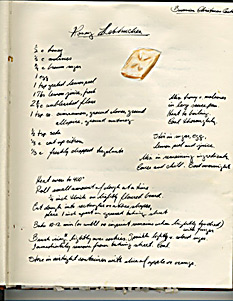 Honey Lebkuchen
½ c honey
½ c molasses
¾ c brown sugar
1 egg
1 tsp grated lemon peel
1 Tbs lemon juice, fresh
2½ c unbleached flour
1 tsp ea. cinnamon, ground cloves, ground
allspice, ground nutmeg
½ tsp soda
⅓ c cut up citron
⅓ c freshly chopped hazelnuts
Mix honey & molasses
in large saucepan
Heat to boiling
Cool thoroughly
Stir in sugar, egg,
lemon peel and juice
Mix in remaining ingredients
Cover and chill. Cool overnight
Heat oven to 400°
Roll small amount of dough at a time
¼ inch thick on lightly floured board.
Cut dough into rectangles or other shapes,
place 1 inch apart on greased baking sheet
Bake 10-12 min (or until no imprint remains when lightly touched)
with finger
Brush icing lightly over cookies.
Immediately remove from baking sheet. Cool.
Store in airtight container with slice of apple or orange.